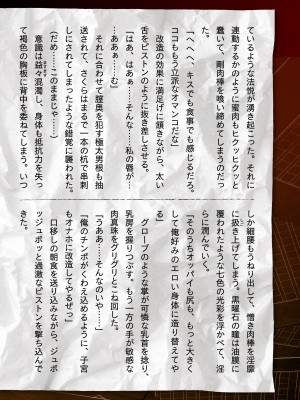 ているような法悦が湧き起こった。それに
連動するかのように蜜肉もヒクッヒクッと
蠢いて、剛肉棒を喰い締めてしまうのだっ
た。
「へへへ、キスでも食事でも感じるだろ。
ココももう立派なオマンコだな」
改造の効果に満足げに頷きながら、太い
舌をピストンのように抜き差しさせる。
「はぁ、はぁぁ……そんな……私の唇が…
…ああぁ……む」
それに合わせて膣奥を犯す極太男根も抽
送されて、さくらはまるで一本の杭で串刺
しにされてしまったような錯覚に襲われた。
（だめ……このままじゃ……）
意識は益々混濁し、身体も抵抗力を失っ
て褐色の胸板に背中を委ねてしまう。いつ
しか細腰もうねり出して、憎き肉棒を淫靡
に扱き上げてしまう。黒曜石の瞳は油膜に
覆われたような七色の光彩を浮かべて、淫
らに潤んでいく。
「そのうちオッパイも尻も、もっと大きく
して俺好みのエロい身体に造り替えてや
る」
グローブのような掌が可憐な乳首を捻り、
乳房を握りつぶす。もう一方の手が敏感な
肉真珠をグリグリとこね回した。
「うああ……そんなのいや……」
「俺のチンポがくわえ込めるように、子宮
もオナホに改造してやるぜっ」
口移しの朝食を送り込みながら、ジュボ
ッジュボッと過激なピストンを撃ち込んで
きた。